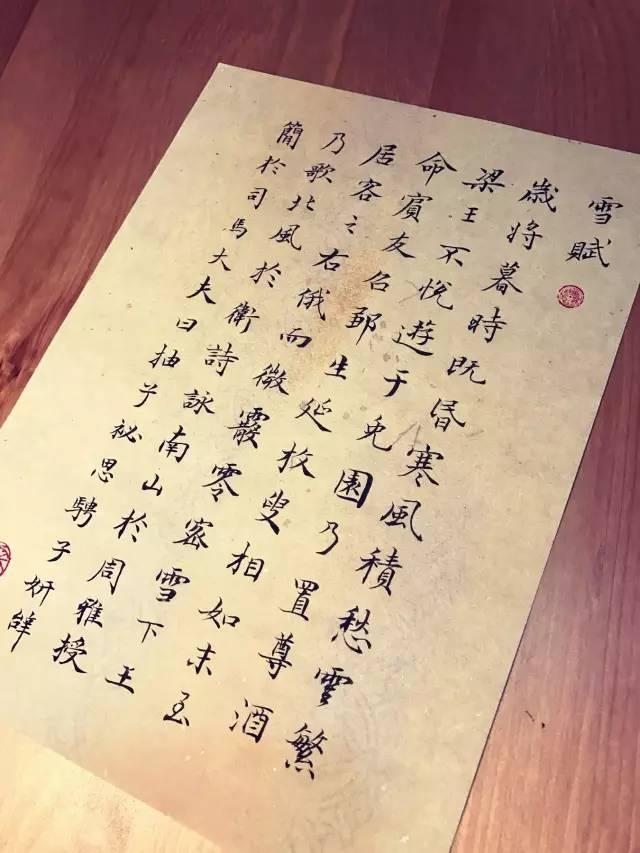 雪賦
歲將暮時既昏寒風積愁雲繁
梁王不悅遊于兔園乃置尊酒
命賓友召鄒生延枚叟相如末至
居客之右俄而微霰零密雪下王
乃歌北風於衛詩詠南山於周雅授
簡於司馬大夫曰抽子祕思騁子妍辭